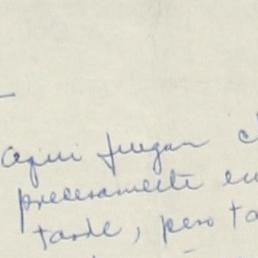 aqui juegan
precisamente en
tarde, pero ta